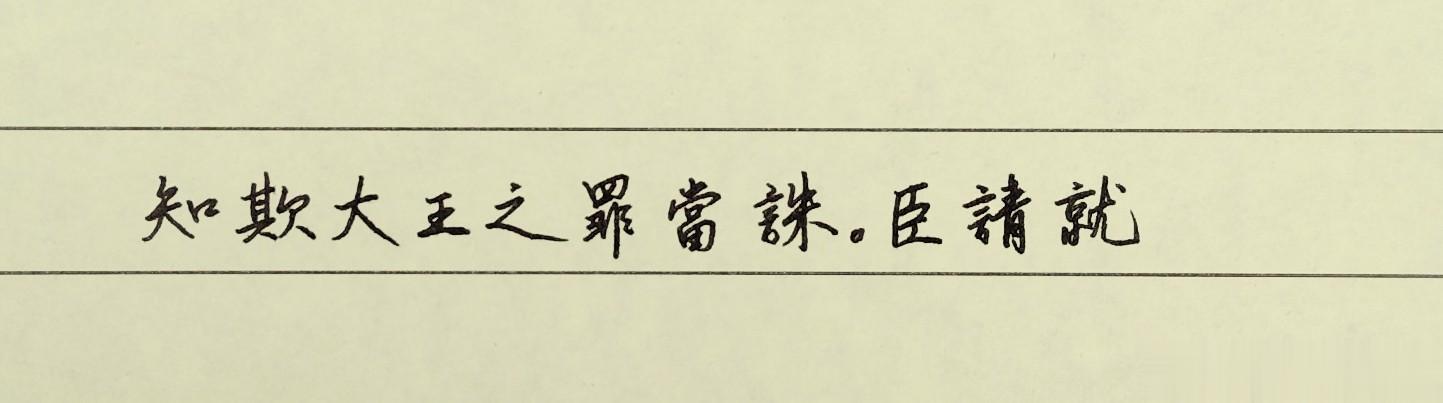 知欺大王之罪當誅。臣請就